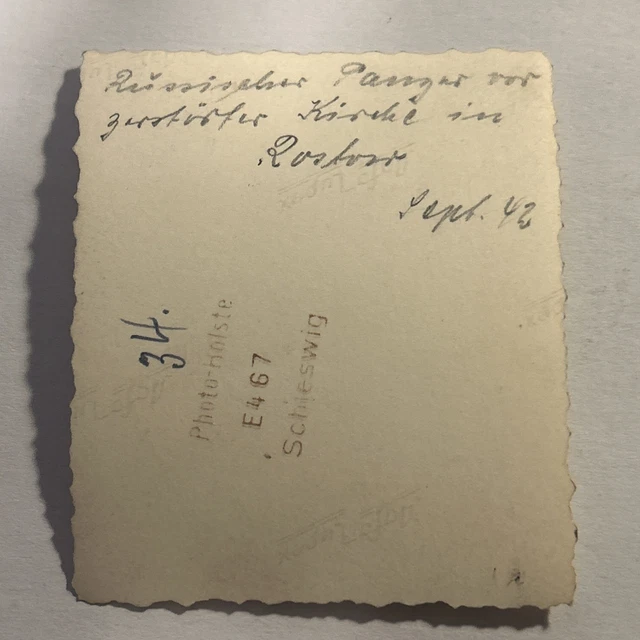 Russischer Panzer vor
zerstörter Kirche in
Rostow
Sept. 42
34.
Photo-Holste
E467
Schleswig